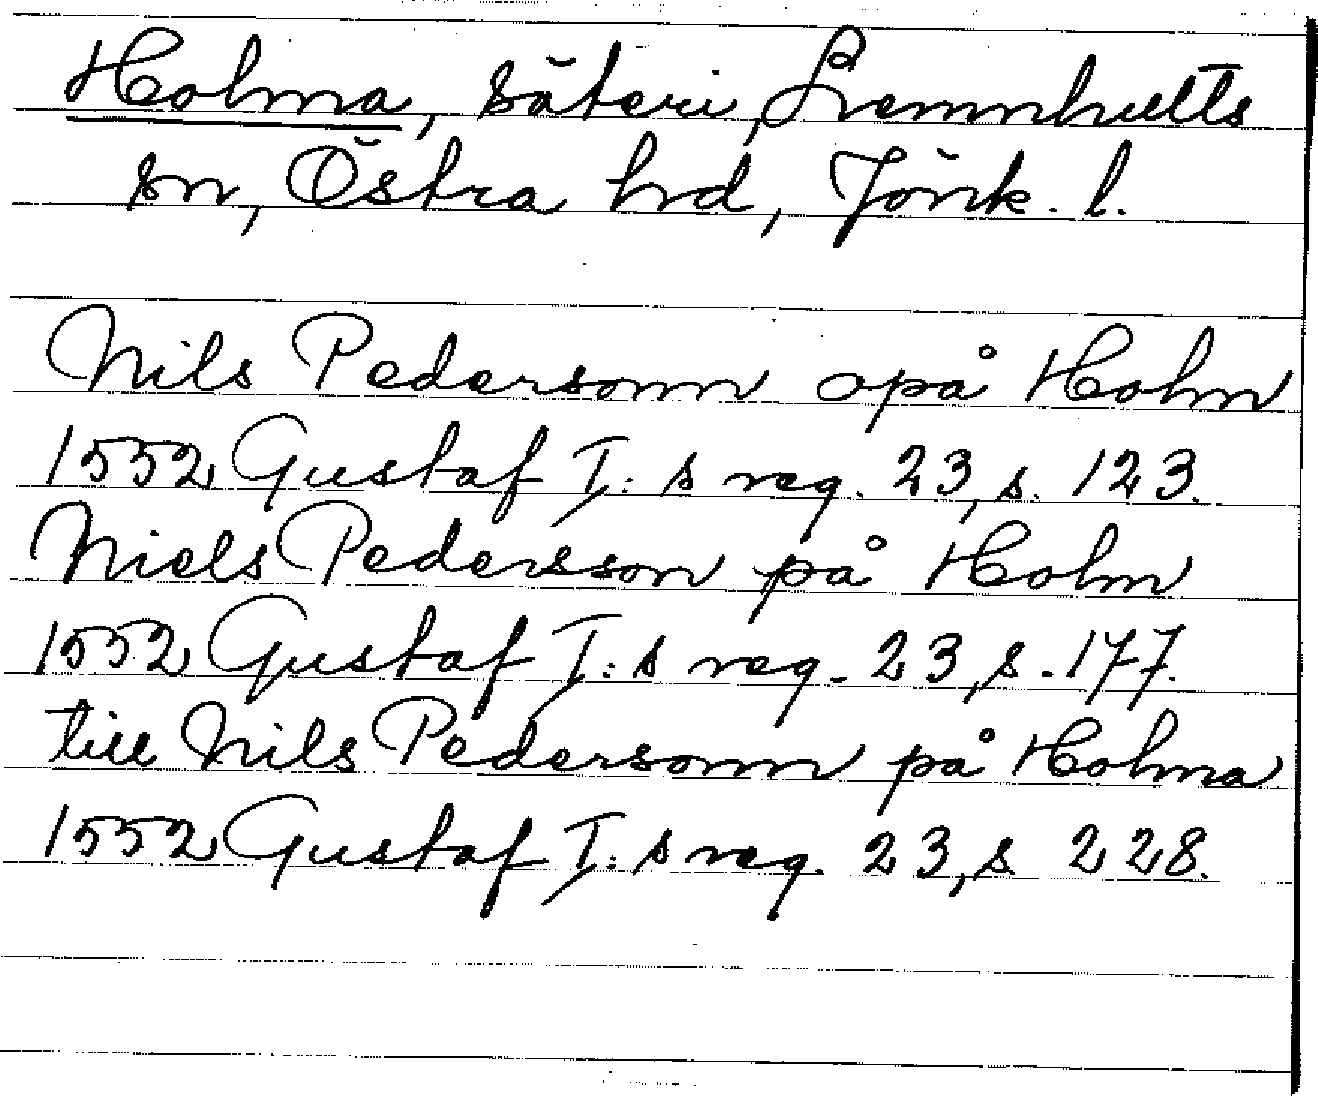 Holma, säteri, Lemnhults
sn, Östra hrd, Jönk. l.
Nils Pedersonn opå Holm
1552 Gustaf I:s reg. 23, s. 123.
Niels Pedersson på Holm
1552 Gustaf I:s reg. 23, s. 177.
till Nils Pedersonn på Holma
1552 Gustaf I:s reg. 23, s 228.